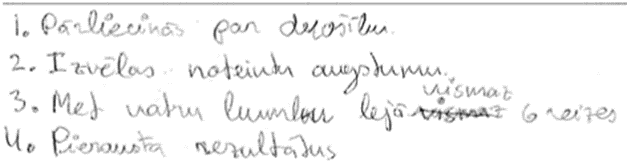 1. Pārliecinās par drošību.
2. Izvēlas noteiktu augstumu.
3. Met katru lumbu lejā vismaz 6 reizes
4. Pieraksta rezultātus